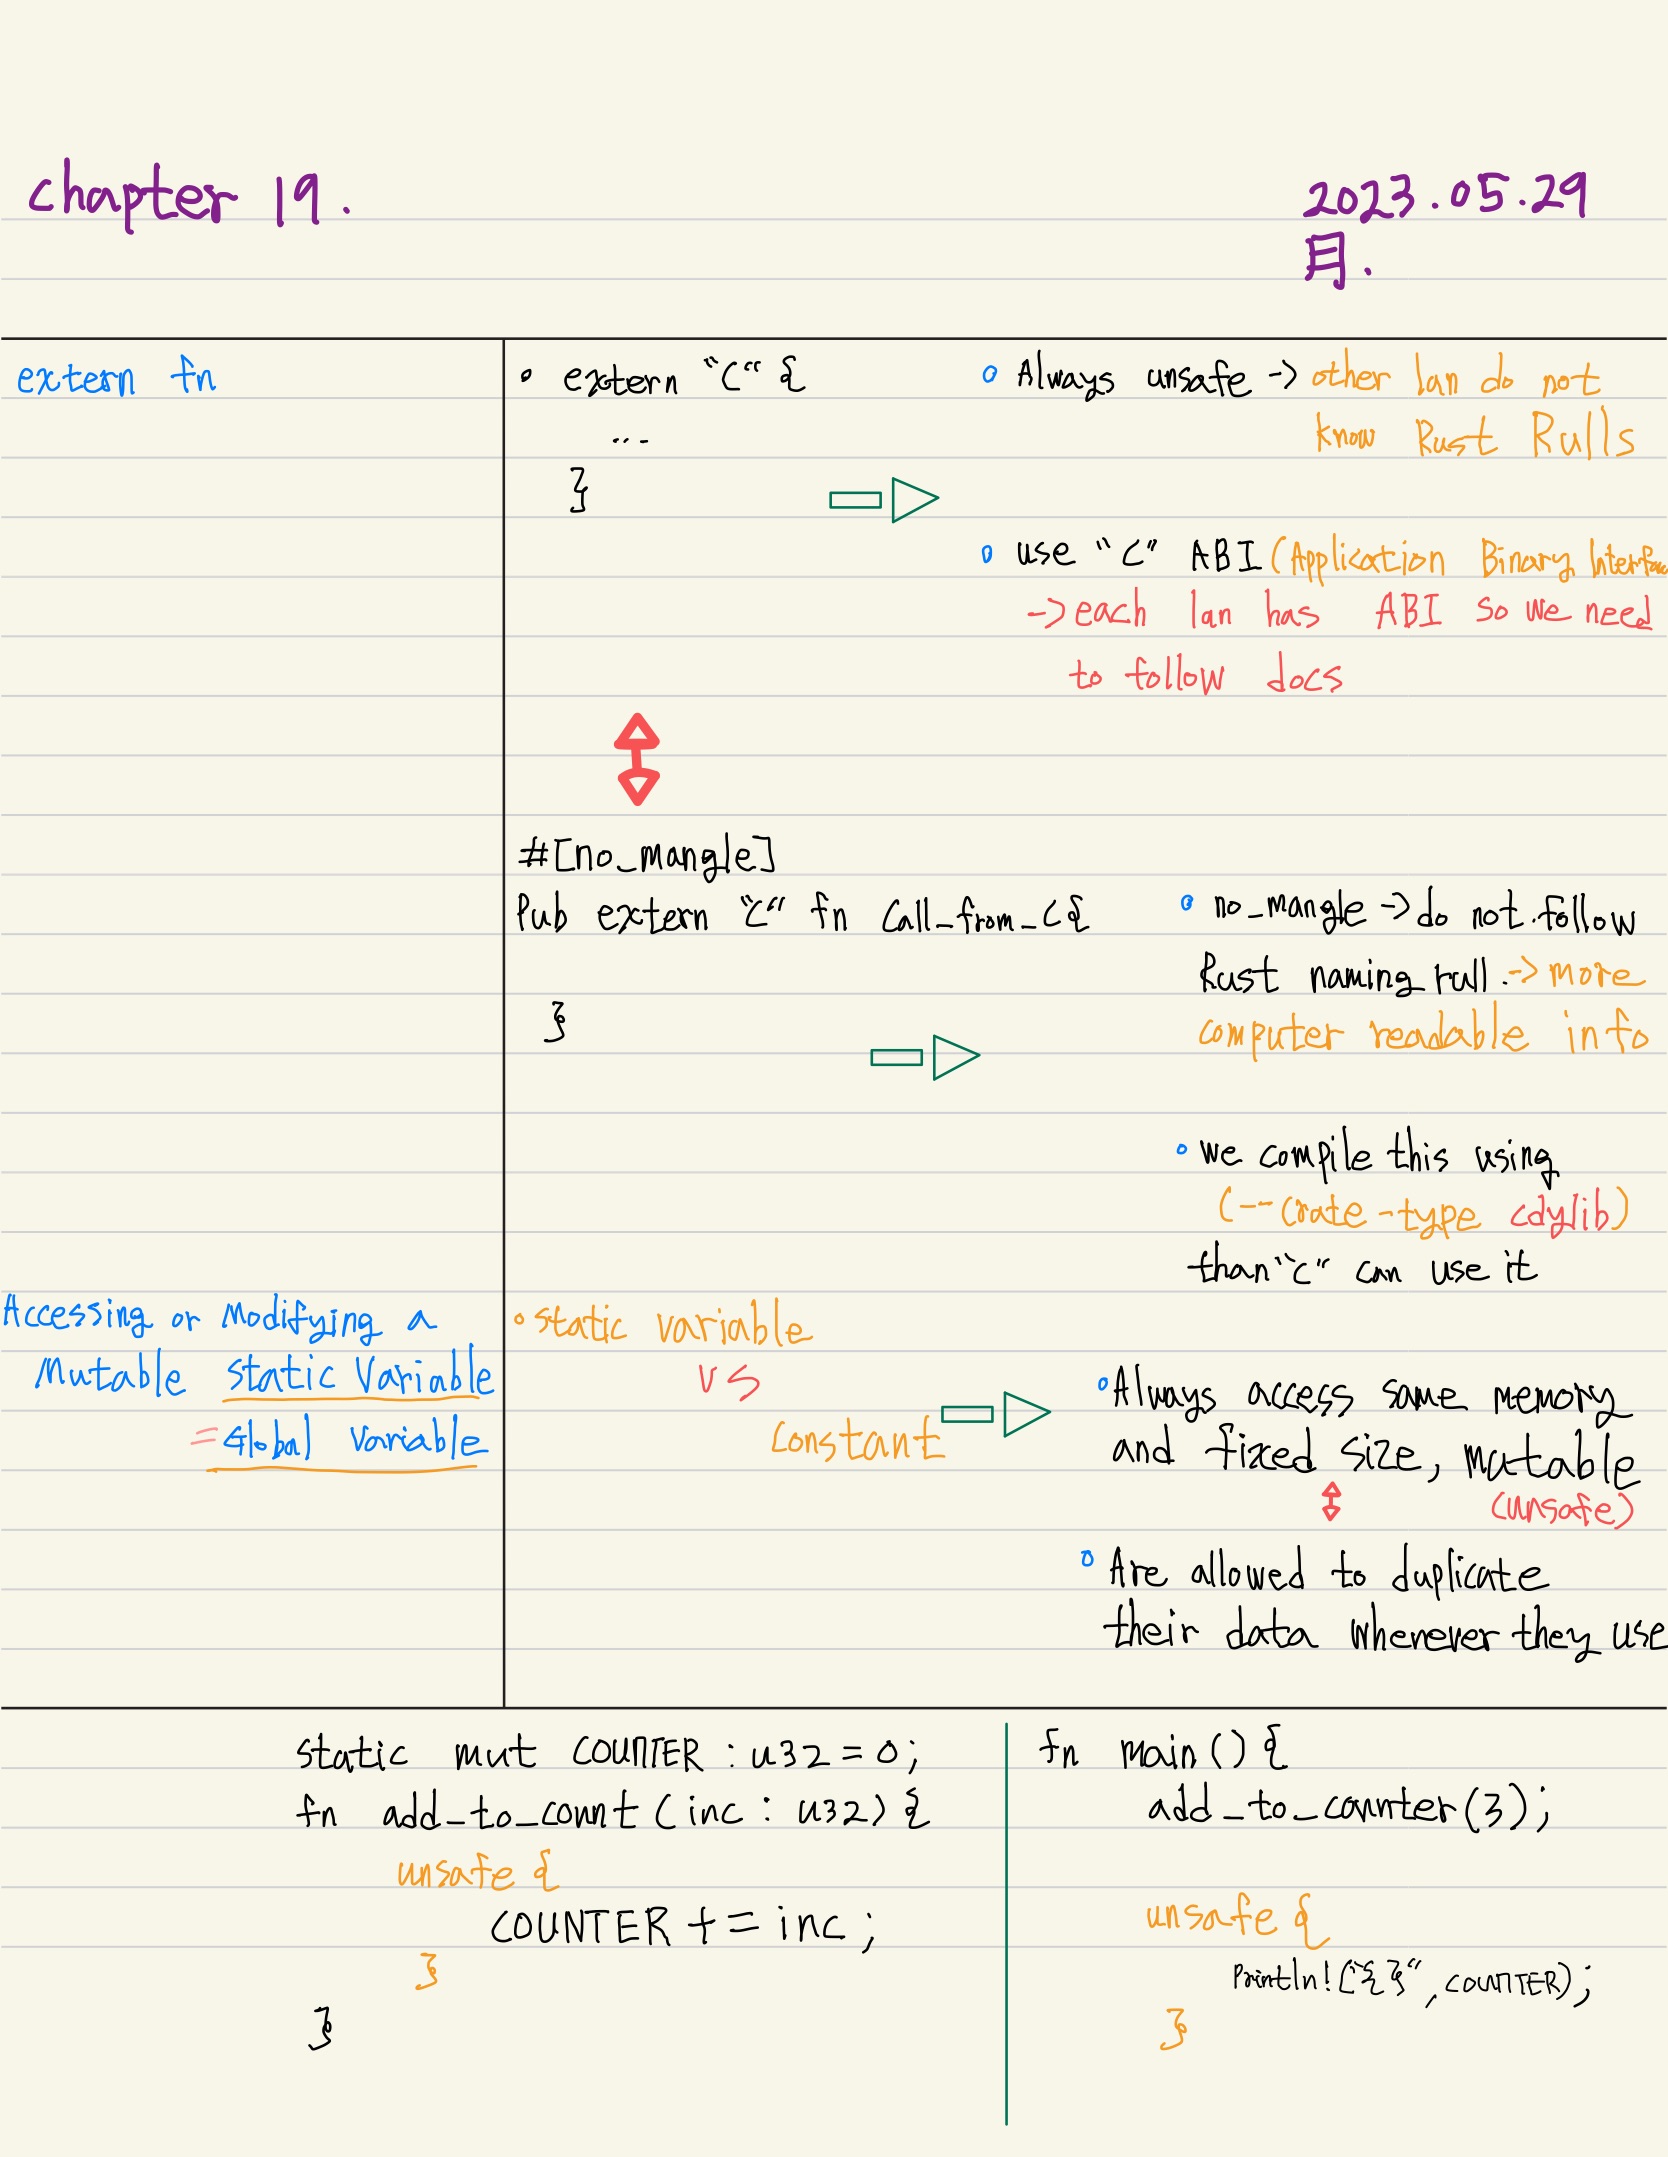 chapter 19.
2023.05.29
月.
extern fn
• extern "C" {
...
}
• Always unsafe -> other lan do not
know Rust Rulls
• use "C" ABI (Application Binary Interface
-> each lan has ABI so we need
to follow docs
#[no_mangle]
Pub extern "C" fn Call_from_C{
}
• no_mangle -> do not.follow
Rust naming rull.-> more
computer readable info
• we compile this using
(--crate-type cdylib)
than "C" can use it
Accessing or Modifying a
Mutable Static Variable
= Global Variable
• static variable
VS
Constant
• Always access same memory
and fixed size, mutable
(unsafe)
• Are allowed to duplicate
their data whenever they use
static mut COUNTER : u32 = 0;
fn add_to_count (inc : u32) {
unsafe {
COUNTER += inc ;
}
}
fn main () {
add_to_counter(3);
unsafe {
Println! ("{}", COUNTER);
}